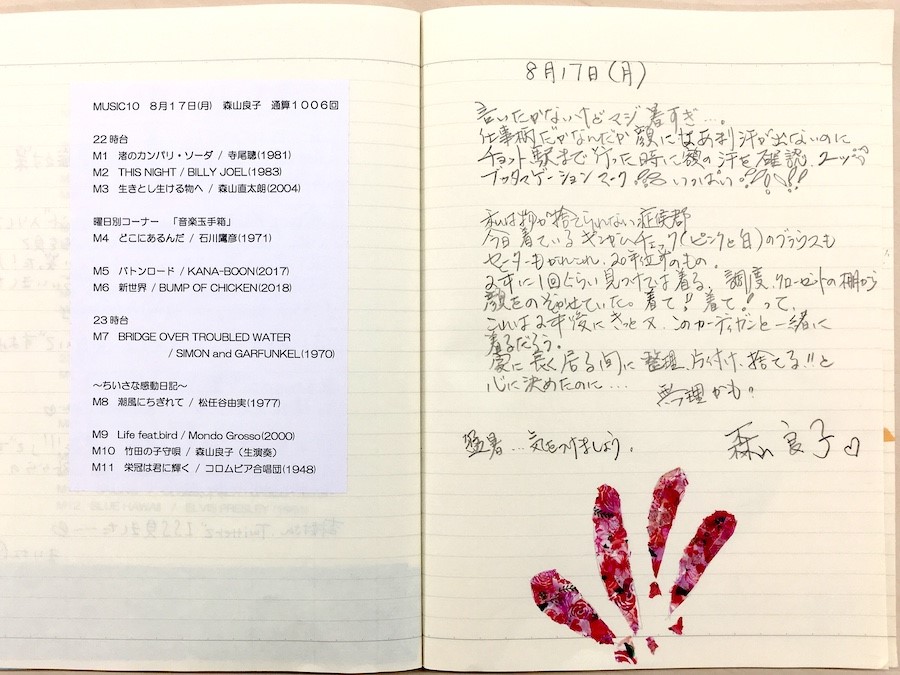 MUSIC10　８月１７日(月)　森山良子　通算１００６回
22時台
M1　渚のカンパリ・ソーダ / 寺尾聰(1981)
M2　THIS NIGHT / BILLY JOEL(1983)
M3　生きとし生ける物へ / 森山直太朗(2004)
曜日別コーナー　「音楽玉手箱」
M4　どこにあるんだ / 石川鷹彦(1971)
M5　バトンロード / KANA-BOON(2017)
M6　新世界 / BUMP OF CHICKEN(2018)
23時台
M7　BRIDGE OVER TROUBLED WATER
/ SIMON and GARFUNKEL(1970)
～ちいさな感動日記～
M8　潮風にちぎれて / 松任谷由実(1977)
M9　Life feat.bird / Mondo Grosso(2000)
M10　竹田の子守唄 / 森山良子（生演奏）
M11　栄冠は君に輝く / コロムビア合唱団(1948)
8月17日(月)
言いたかないけどマジ暑すぎ…。
仕事柄だかなんだか顔にはあまり汗が出ないのに
チョット駅まで行った時に額の汗を確認
ブッタマゲーションマーク!! いっぱい!!!
私は物が捨てられない症候群
今日着ているギンガムチェック(ピンクと白)のブラウスも
セーターもかれこれ、20年位前のもの。
2年に1回ぐらい見つけては着る。調度、クローゼットの棚から
顔をのぞかせていた。着て!! 着て!! って、
これは2年後にきっと又、このカーディガンと一緒に
着るだろう。
家に長く居る間に整理、片付け、捨てる!!と
心に決めたのに…
無理かも?
猛暑…気をつけましょう。
森山良子♡